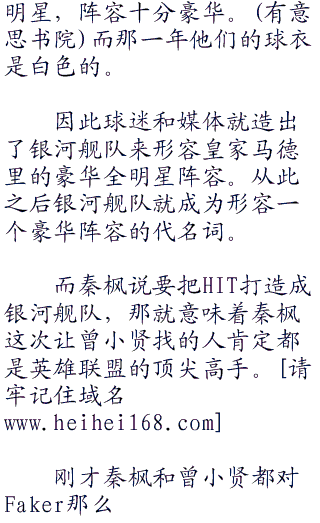 明星，阵容十分豪华。(有意
思书院)而那一年他们的球衣
是白色的。
因此球迷和媒体就造出
了银河舰队来形容皇家马德
里的豪华全明星阵容。从此
之后银河舰队就成为形容一
个豪华阵容的代名词。
而秦枫说要把HIT打造成
银河舰队，那就意味着秦枫
这次让曾小贤找的人肯定都
是英雄联盟的顶尖高手。[请
牢记住域名
www.heihei168.com]
刚才秦枫和曾小贤都对
Faker那么